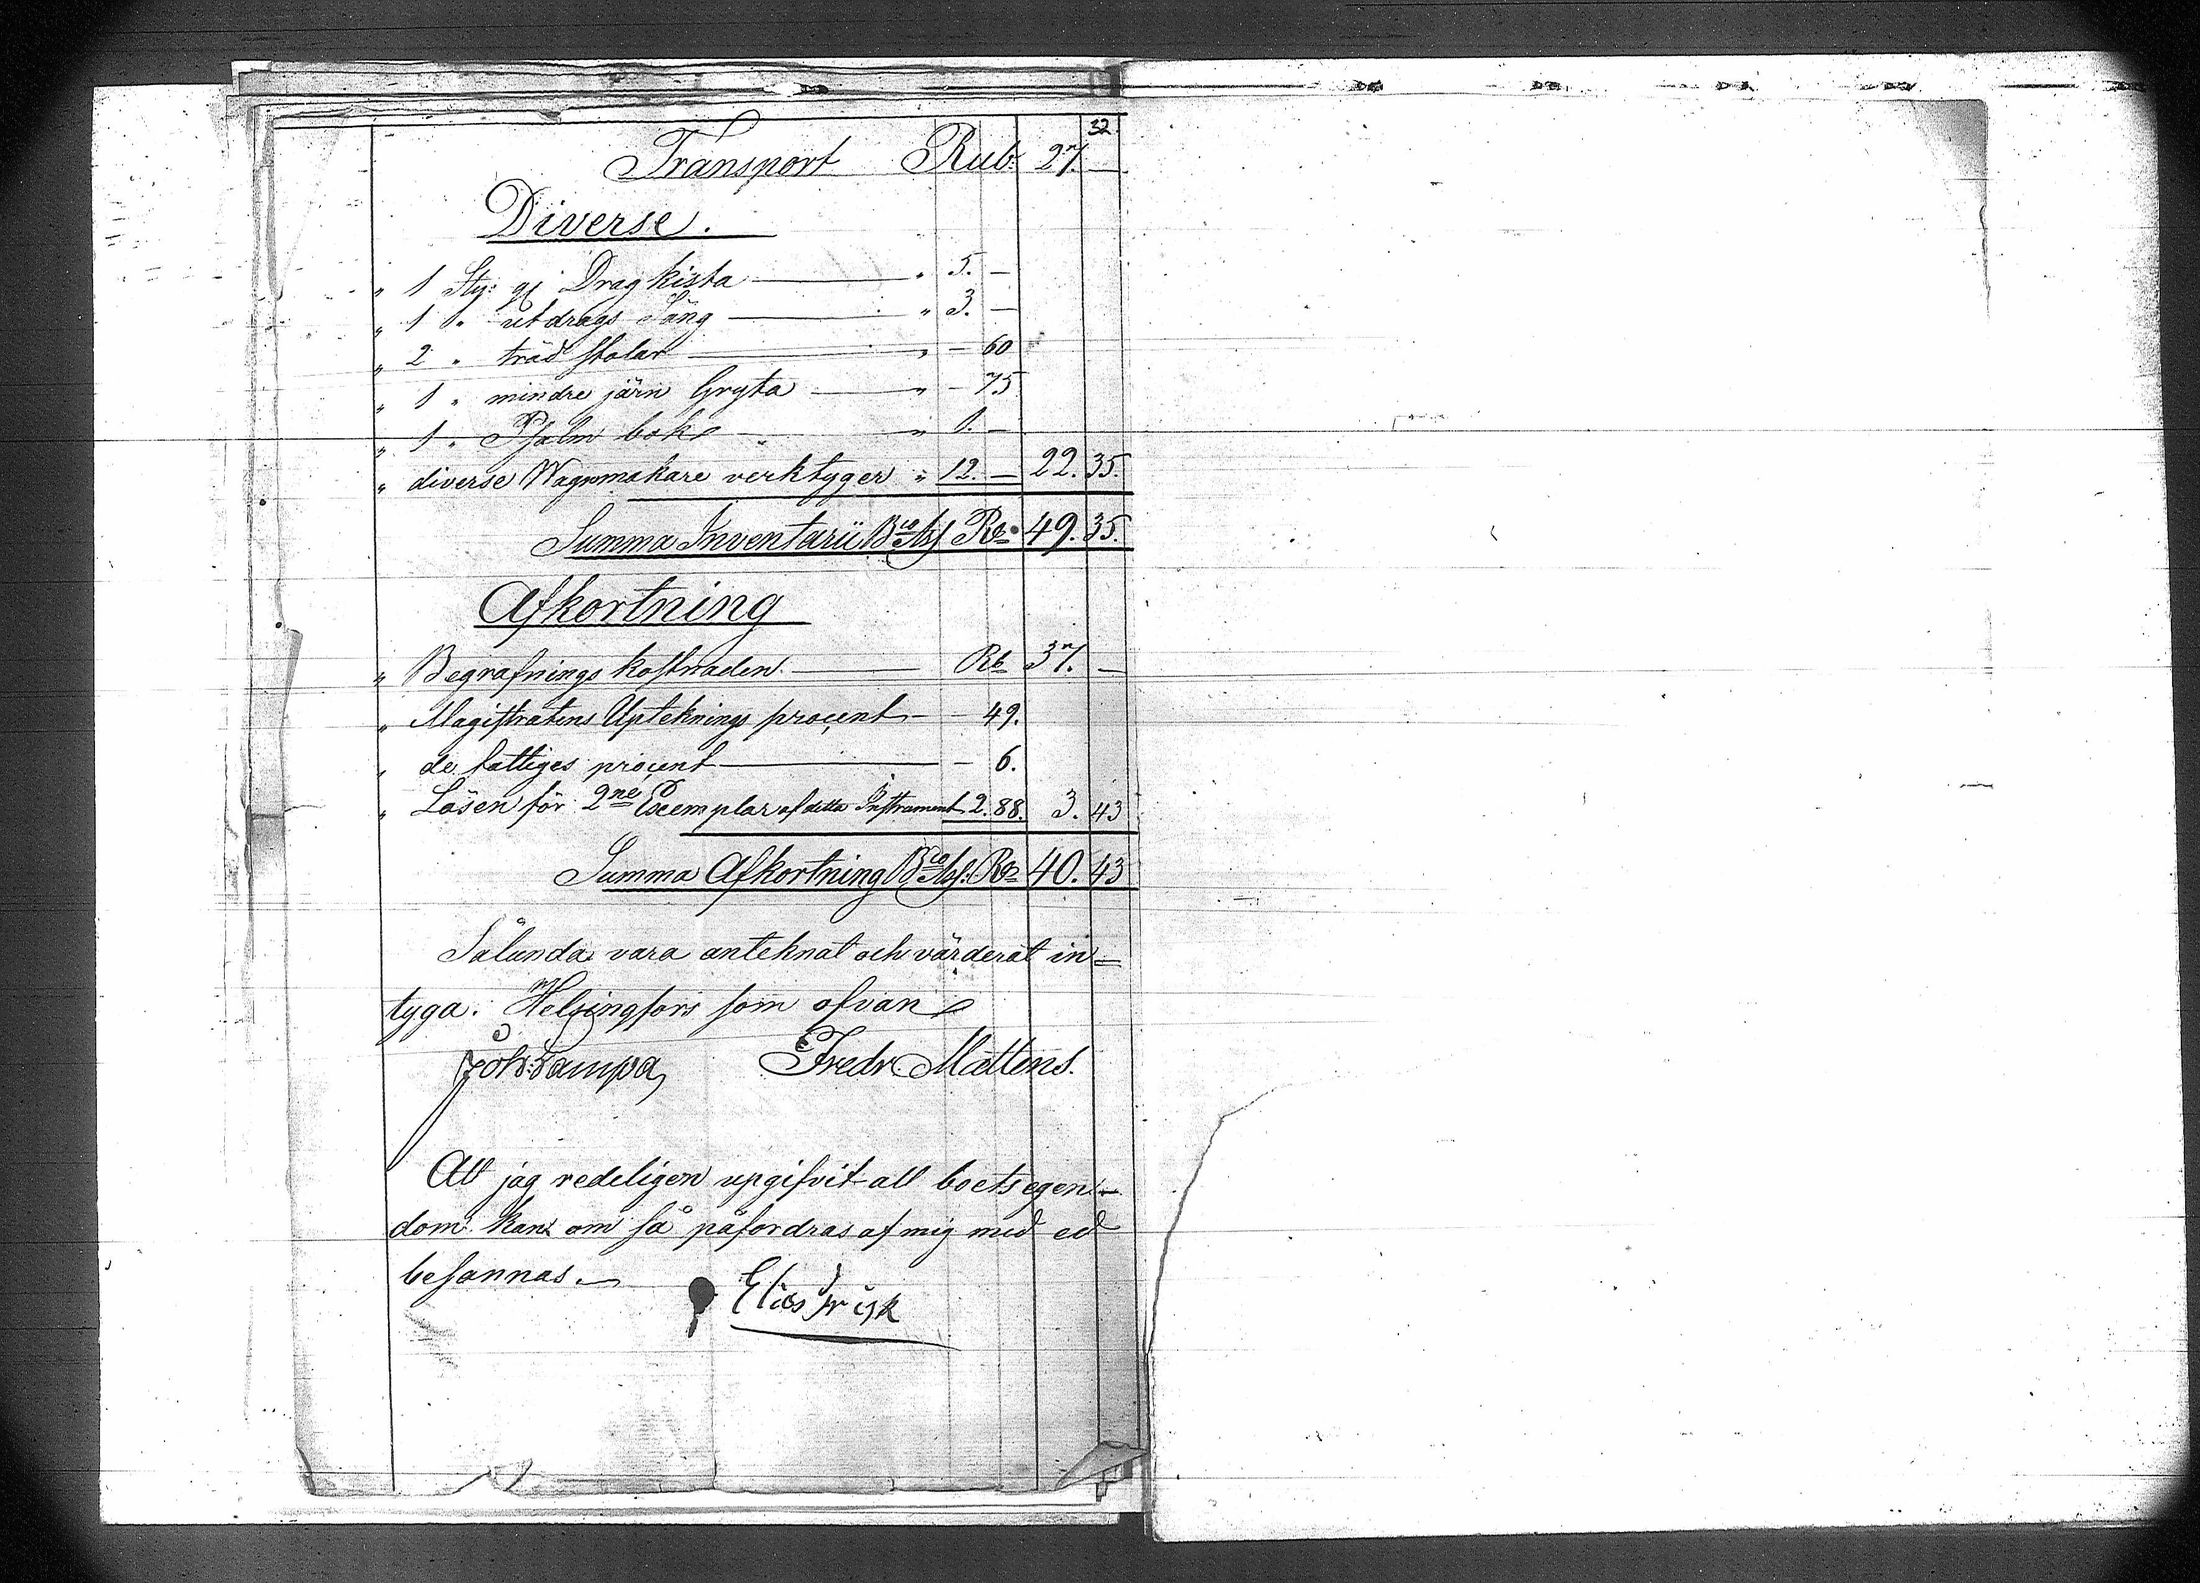 32
Transport Rub: 27. —
Diverse.
" 1 Sty: gl Dragkista — " 5. —
" 1 " utdrags Säng — " 3. —
" 2 " träd stolar — " — 60
" 1 " mindre järn Gryta — " — 75
" 1 " Psalm bok — " 1. —
" diverse Wagnmakare verktyger " 12. — 22. 35.
Summa Inventarii Bco Ass Rb 49. 35.
Afkortning
" Begrafnings kostnaden — Rb 37. —
" Magistratens Upteknings procent — — 49.
" de fattiges procent — — 6.
" Lösen för 2ne Exemplar af detta Instrument 2. 88. 3. 43
Summa Afkortning Bco Ass: Rb 40. 43
Sålunda vara anteknat och värderat in=
tyga. Helsingfors som ofvan
Joh: Tampa Fredr Mattens.
Att jag redeligen upgifvit all boets egen-
dom kan om så påfordras af mig med ed
besannas. —
Elias Frisk